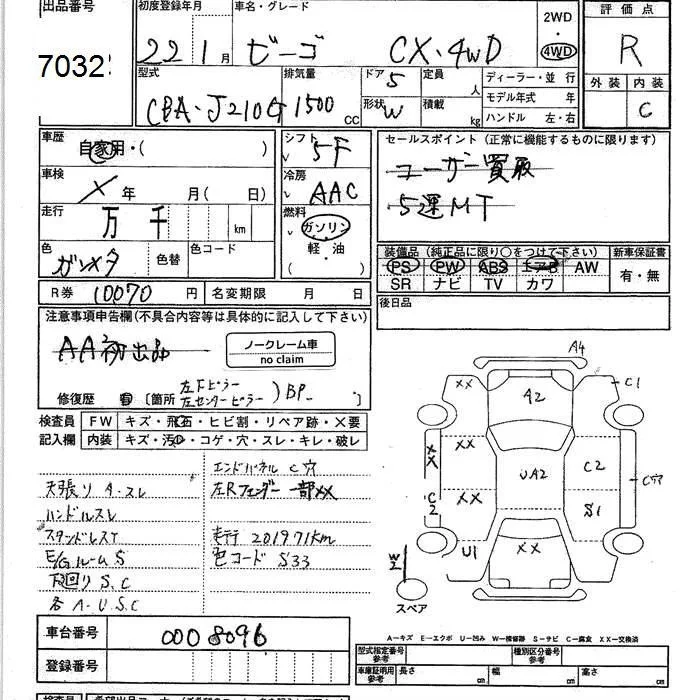 出品番号 初度登録年月 車名・グレード 2WD 評価点
7032 22 1月 ビーゴ CX・4WD 4WD R
型式 排気量 ドア 5 定員 人 ディーラー・並 行 外装 内装
CBA-J210G 1500 CC 形状 W 積載 kg モデル年式 年 C
ハンドル 左・右
車歴 自家用・( ) シフト 5F セールスポイント (正常に機能するものに限ります)
車検 × 年 月(日) 冷房 AAC ユーザー買取
走行 万 千 km 燃料 ガソリン 5速MT
色 ガンメタ 色替 色コード 軽・油 ( )
装備品 (純正品に限り○をつけて下さい) 新車保証書
PS PW ABS エアB AW 有・無
SR ナビ TV カワ
R券 10070 円 名変期限 月 日 後日品
注意事項申告欄(不具合内容等は具体的に記入して下さい)
AA初出品 ノークレーム車
no claim
修復歴 有 [箇所 左Fピラー
左センターピラー ) BP ]
検査員 FW キズ・飛石・ヒビ割・リペア跡・×要
記入欄 内装 キズ・汚れ・コゲ・穴・スレ・キレ・破レ
エンドパネル C穴
天張り A・スレ 左Rフェンダー 一部XX
ハンドルスレ
スタンドレスT 走行 201971km
E/Gルーム S 色コード S33
下回り S.C
各 A・U.S.C
A4
XX A2 C1
XX XX UA2 C2 C穴
C2 XX S1
U1 XX
W2
スペア
A―キズ E―エクボ U―凹み W―補修跡 S―サビ C―腐食 XX―交換済
車台番号 0008096
登録番号
型式指定番号 参考 種別区分番号 参考
車庫証明用 参考 長さ cm 幅 cm 高さ cm